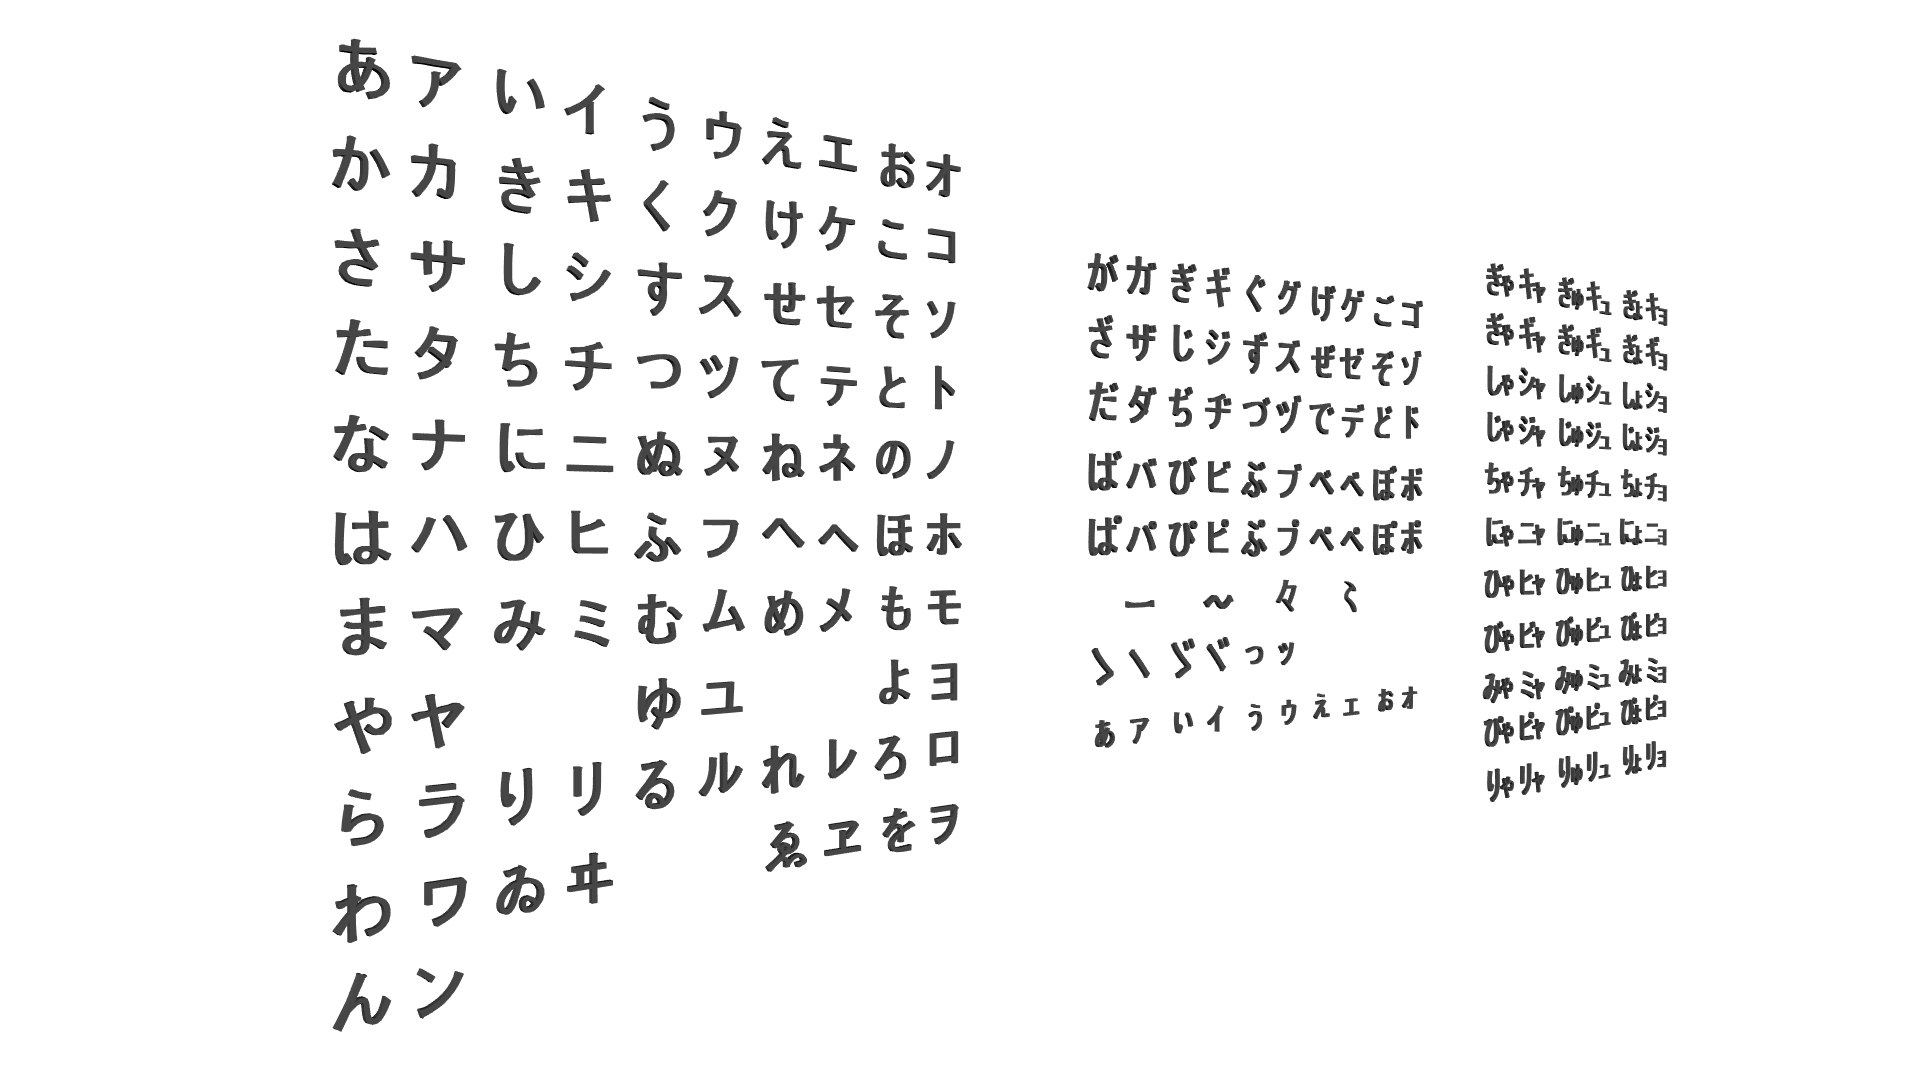 あ ア い イ う ウ え エ お オ
か カ き キ く ク け ケ こ コ
さ サ し シ す ス せ セ そ ソ
た タ ち チ つ ツ て テ と ト
な ナ に ニ ぬ ヌ ね ネ の ノ
は ハ ひ ヒ ふ フ へ ヘ ほ ホ
ま マ み ミ む ム め メ も モ
や ヤ ゆ ユ よ ヨ
ら ラ り リ る ル れ レ ろ ロ
わ ワ ゐ ヰ ゑ ヱ を ヲ
ん ン
が ガ ぎ ギ ぐ グ げ ゲ ご ゴ
ざ ザ じ ジ ず ズ ぜ ゼ ぞ ゾ
だ ダ ぢ ヂ づ ヅ で デ ど ド
ば バ び ビ ぶ ブ べ ベ ぼ ボ
ぱ パ ぴ ピ ぷ プ ぺ ペ ぽ ポ
ー 〜 々 〻
ゝ ヽ ゞ ヾ っ ッ
ぁ ァ ぃ ィ ぅ ゥ ぇ ェ ぉ ォ
きゃ キャ きゅ キュ きょ キョ
ぎゃ ギャ ぎゅ ギュ ぎょ ギョ
しゃ シャ しゅ シュ しょ ショ
じゃ ジャ じゅ ジュ じょ ジョ
ちゃ チャ ちゅ チュ ちょ チョ
にゃ ニャ にゅ ニュ にょ ニョ
ひゃ ヒャ ひゅ ヒュ ひょ ヒョ
びゃ ビャ びゅ ビュ びょ ビョ
みゃ ミャ みゅ ミュ みょ ミョ
ぴゃ ピャ ぴゅ ピュ ぴょ ピョ
りゃ リャ りゅ リュ りょ リョ